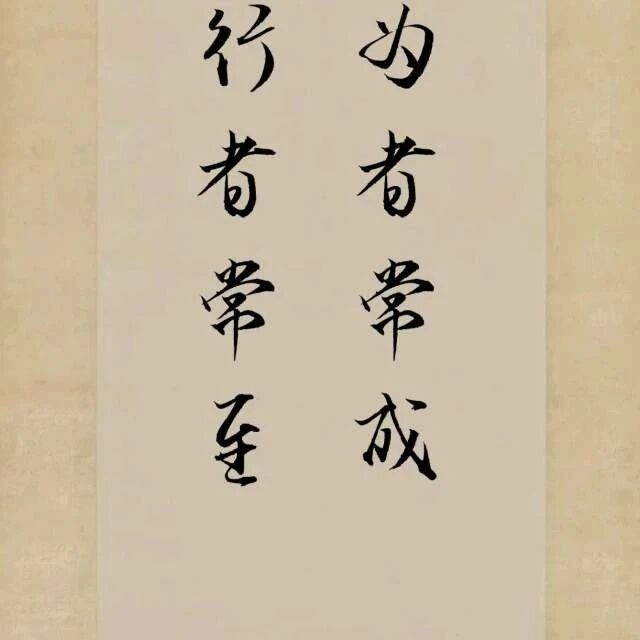 为者常成
行者常至